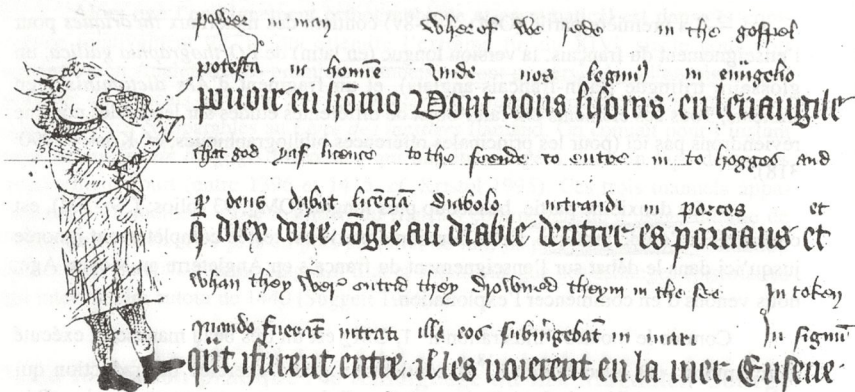 power in man Wher of we rede in the gospel
potestas in homine unde nos legimus in evangelio
Povoir en homo Dont nous lisoms en levangile
that god yaf licence to the feende to entre in to hogges and
deus dabat licenciam diabolo intrandi in porcos et
Diex done congie au diable dentrer es porciaus et
whan they wer entred they drowned theym in the see In token
Quando fuerant intrati ille eos submergebat in mari In signum
quant ifurent entre il les noierent en la mer Ensene